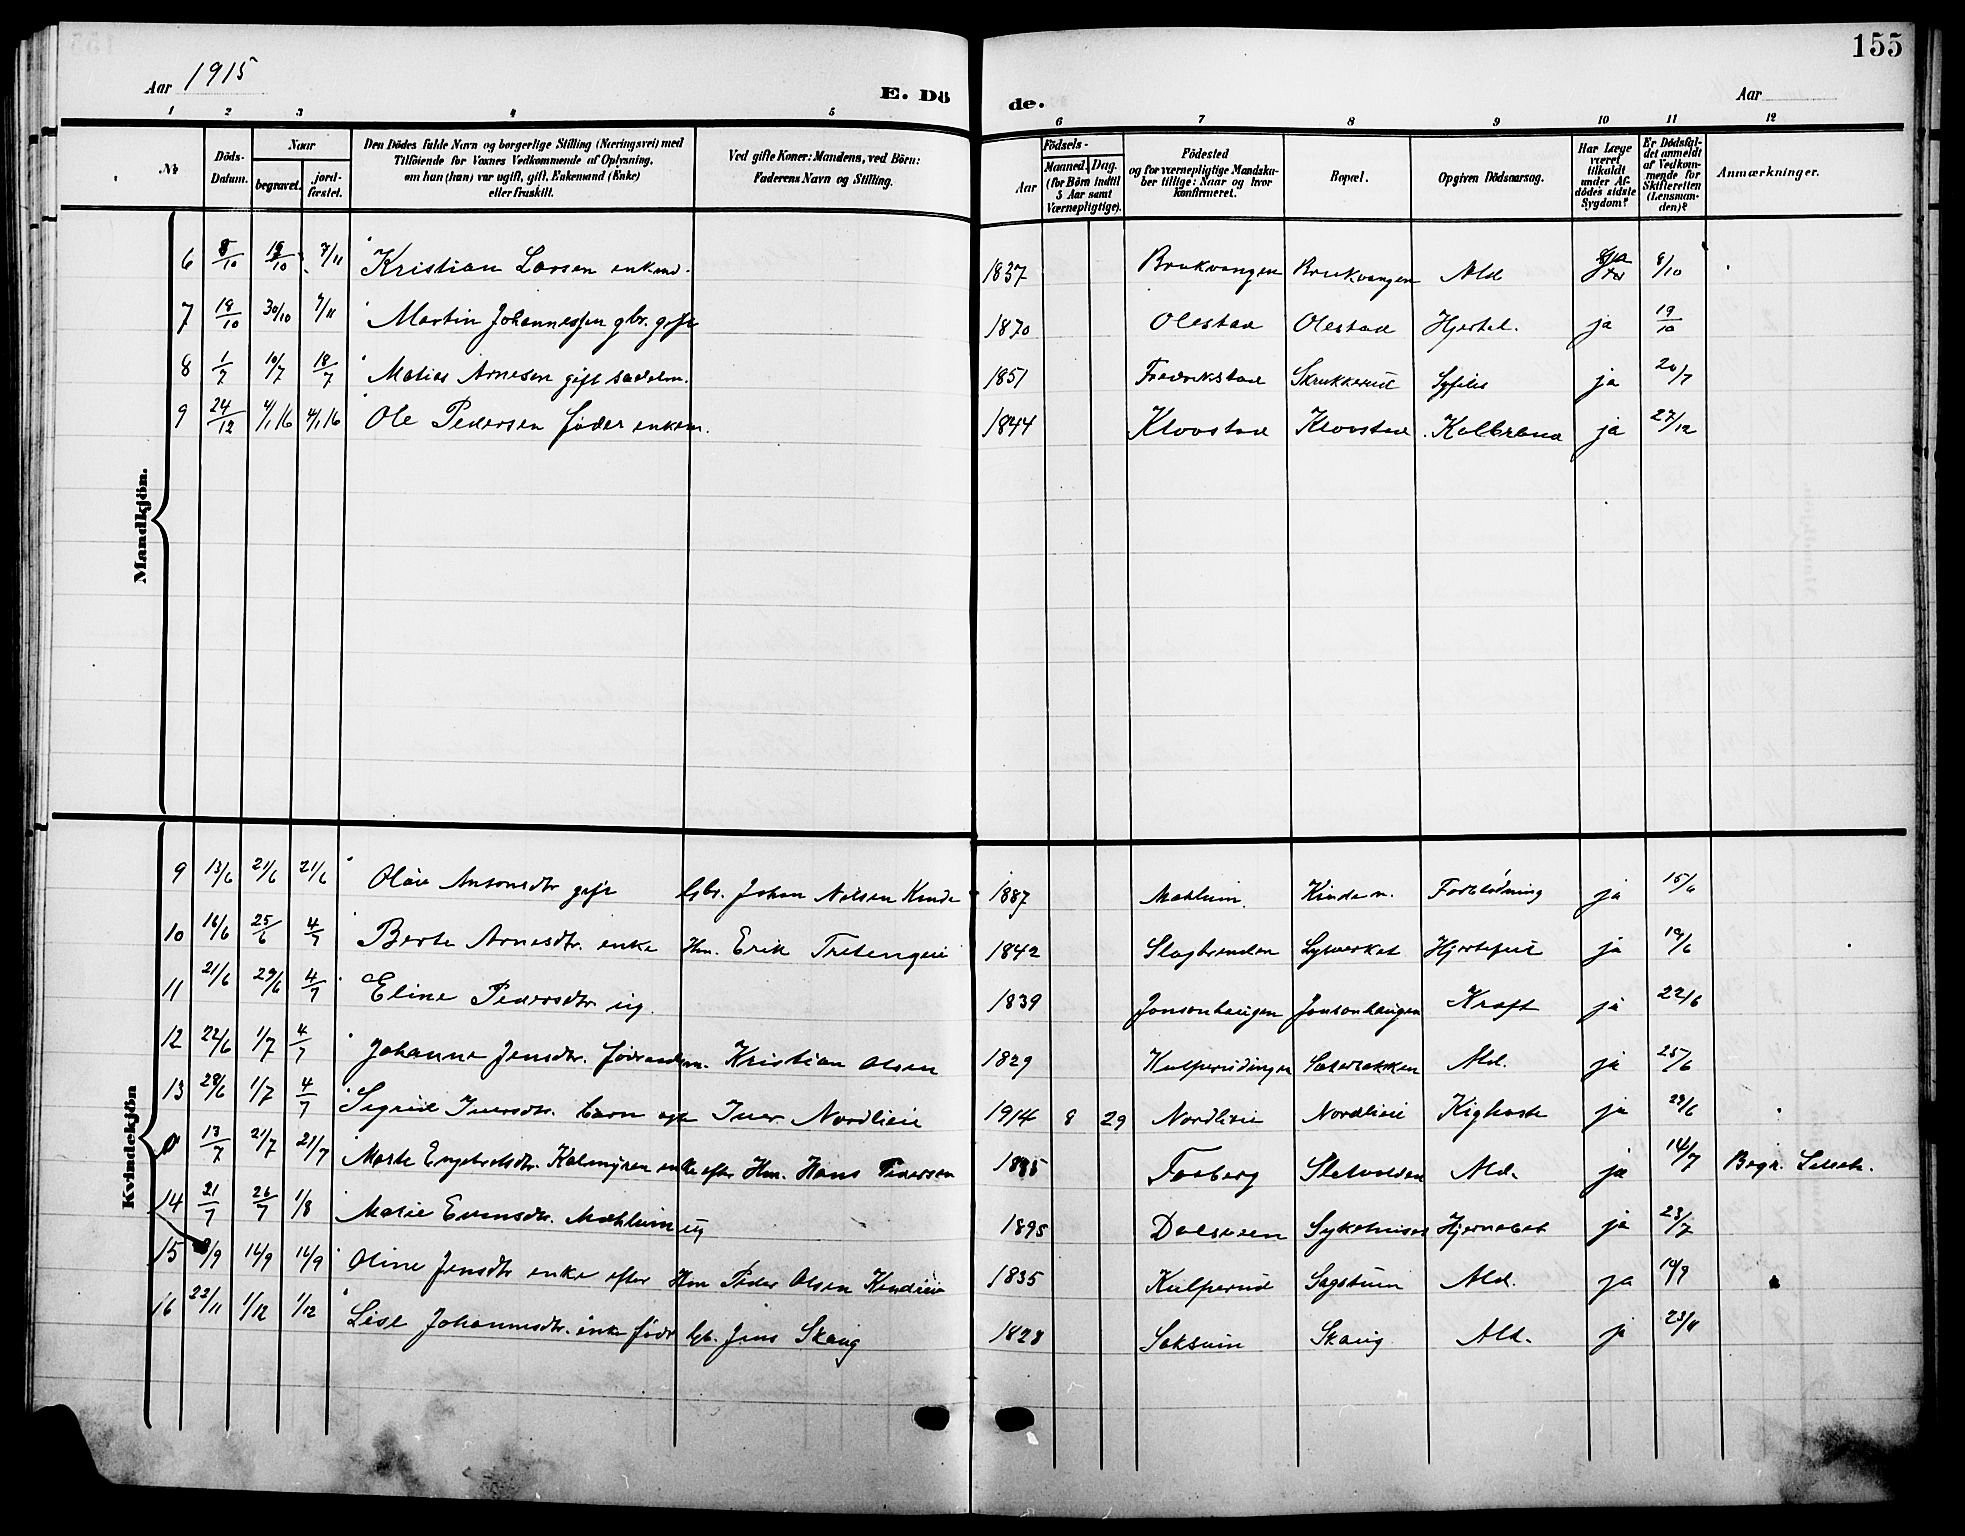 155
Aar 1915
E. Dö de.
Aar
1 2 3 4 5 6 7 8 9 10 11 12
Nr.
Döds-Datum.
Naar
begravet.
jord-fæstet.
Den Dödes fulde Navn og borgerlige Stilling (Næringsvei) med
Tilföiende for Voxnes Vedkommende af Oplysning,
om hun (han) var ugift, gift, Enkemand (Enke)
eller fraskilt.
Ved gifte Koner: Mandens, ved Börn:
Faderens Navn og Stilling.
Födsels-
Aar
Maaned. Dag.
(for Börn indtil
5 Aar samt
Værnepligtige).
Födested
og for værnepligtige Mandska-
ber tillige: Naar og hvor
konfirmeret.
Bopæl.
Opgiven Dödsaarsag.
Har Læge
været
tilkaldt
under Af-
dödes sidste
Sygdom?
Er Dödsfal-
det anmeldt
af Vedkom-
mende for
Skifteretten
(Lensman-
den)?
Anmærkninger.
Mandkjön.
6 8/10 7/11 Kristian Larsen enkem. 1837 Brukvangen Brukvangen Ald 8/10
7 19/10 30/10 9/11 Martin Johannessen gbr. gift 1870 Olestad Olestad Hjertel. ja 19/10
8 1/7 10/7 18/7 Matias Arnesen gift sadelm. 1851 Fredrikstad Skrukkerud Syfilis ja 20/7
9 24/12 4/1 16 4/1 16 Ole Pedersen föder enkem. 1844 Klovstad Klovstad Kolbrand ja 27/12
Kvindekjön
9 13/6 21/6 21/6 Antonsdtr gift Gbr. Johan Nilsen Kinde 1887 Mæhlum Kinde n. Forblödning ja 15/6
10 16/6 25/6 4/7 Berte Arnesdtr. enke Hm. Erik Tretengeie 1842 Slagbrenden Hjertefeil ja 19/6
11 21/6 29/6 4/7 Eline Pedersdtr ug. 1839 Jonsonhaugen Jonsonhaugen Kræft ja 22/6
12 22/6 1/7 4/7 Johanne Jensdtr. Kristian Olsen 1829 Kulperudingen Sæterbakken Ald. ja 25/6
13 28/6 1/7 4/7 Sigrid Iversdtr. barn Iver Nordlieie 1914 8 29 Nordlieie Nordlieie Kighoste ja 29/6
0 13/7 21/7 21/7 Marte Engebretsdtr. Kalmyren enke efter Hm. Hans Pedersen Faaberg Sletvolden Ald. ja 14/7 Begr.
14 21/7 26/7 1/8 Marie Evensdtr. Mæhlum ug 1895 Dalsveen Sykehuset ja 23/7
15 9/9 14/9 14/9 Oline Jensdtr enke efter Hm Peder Olsen 1835 Kulperud Sagstuen Ald. ja
16 22/11 1/12 1/12 Lise Johannesdtr. enke föder Gb. Jens Skaug 1828 Saksum Skaug Ald. ja 23/11